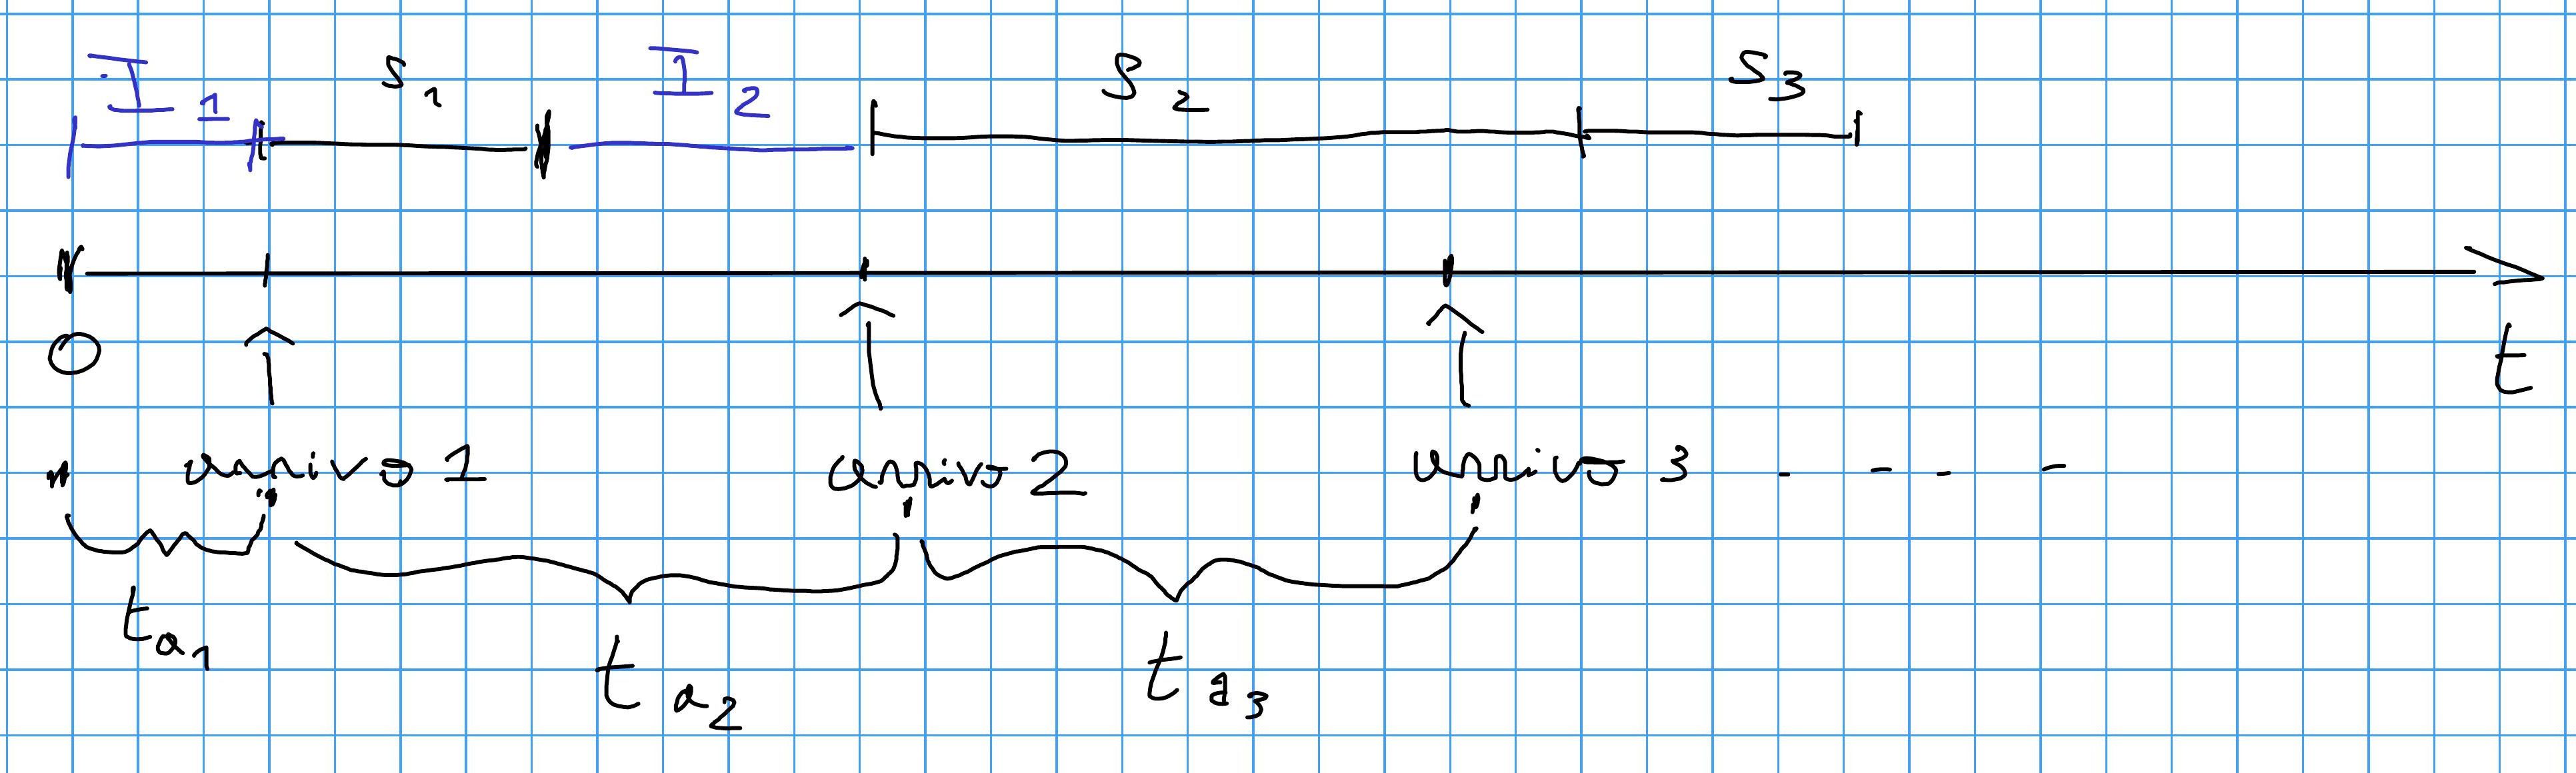 I1 S1 I2 S2 S3
0 t
arrivo 1 arrivo 2 arrivo 3 - - - -
ta1 ta2 ta3